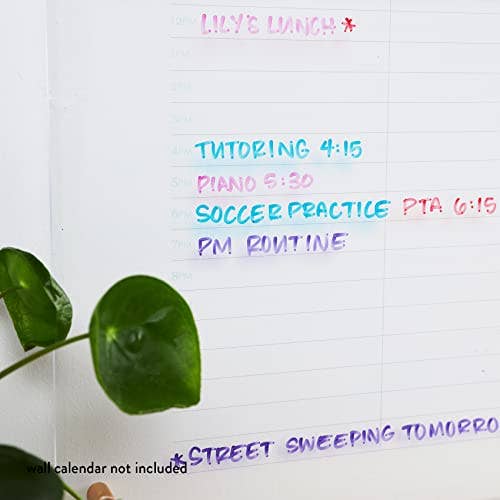 12PM LILY'S LUNCH *
1PM
2PM
3PM
4PM TUTORING 4:15
5PM PIANO 5:30
6PM SOCCER PRACTICE PTA 6:15
7PM PM ROUTINE
8PM
*STREET SWEEPING TOMORRO
wall calendar not included